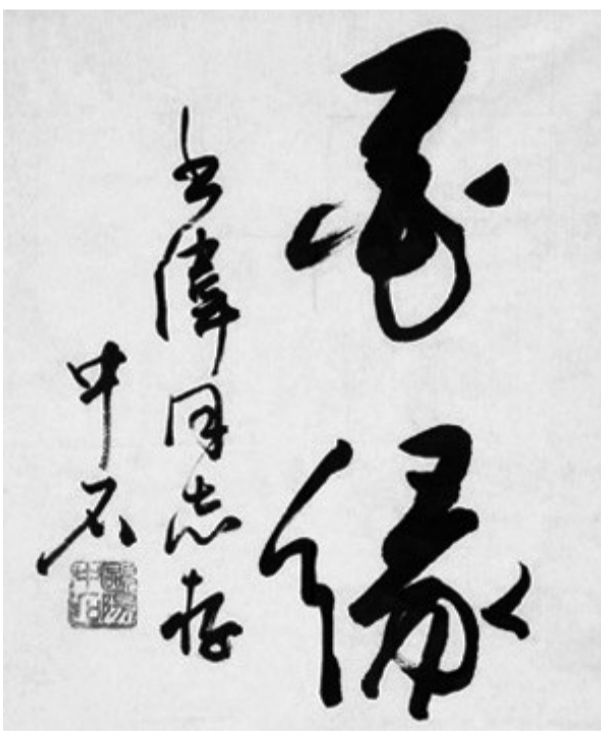 墨缘
书伟同志存
中石
欧阳中石